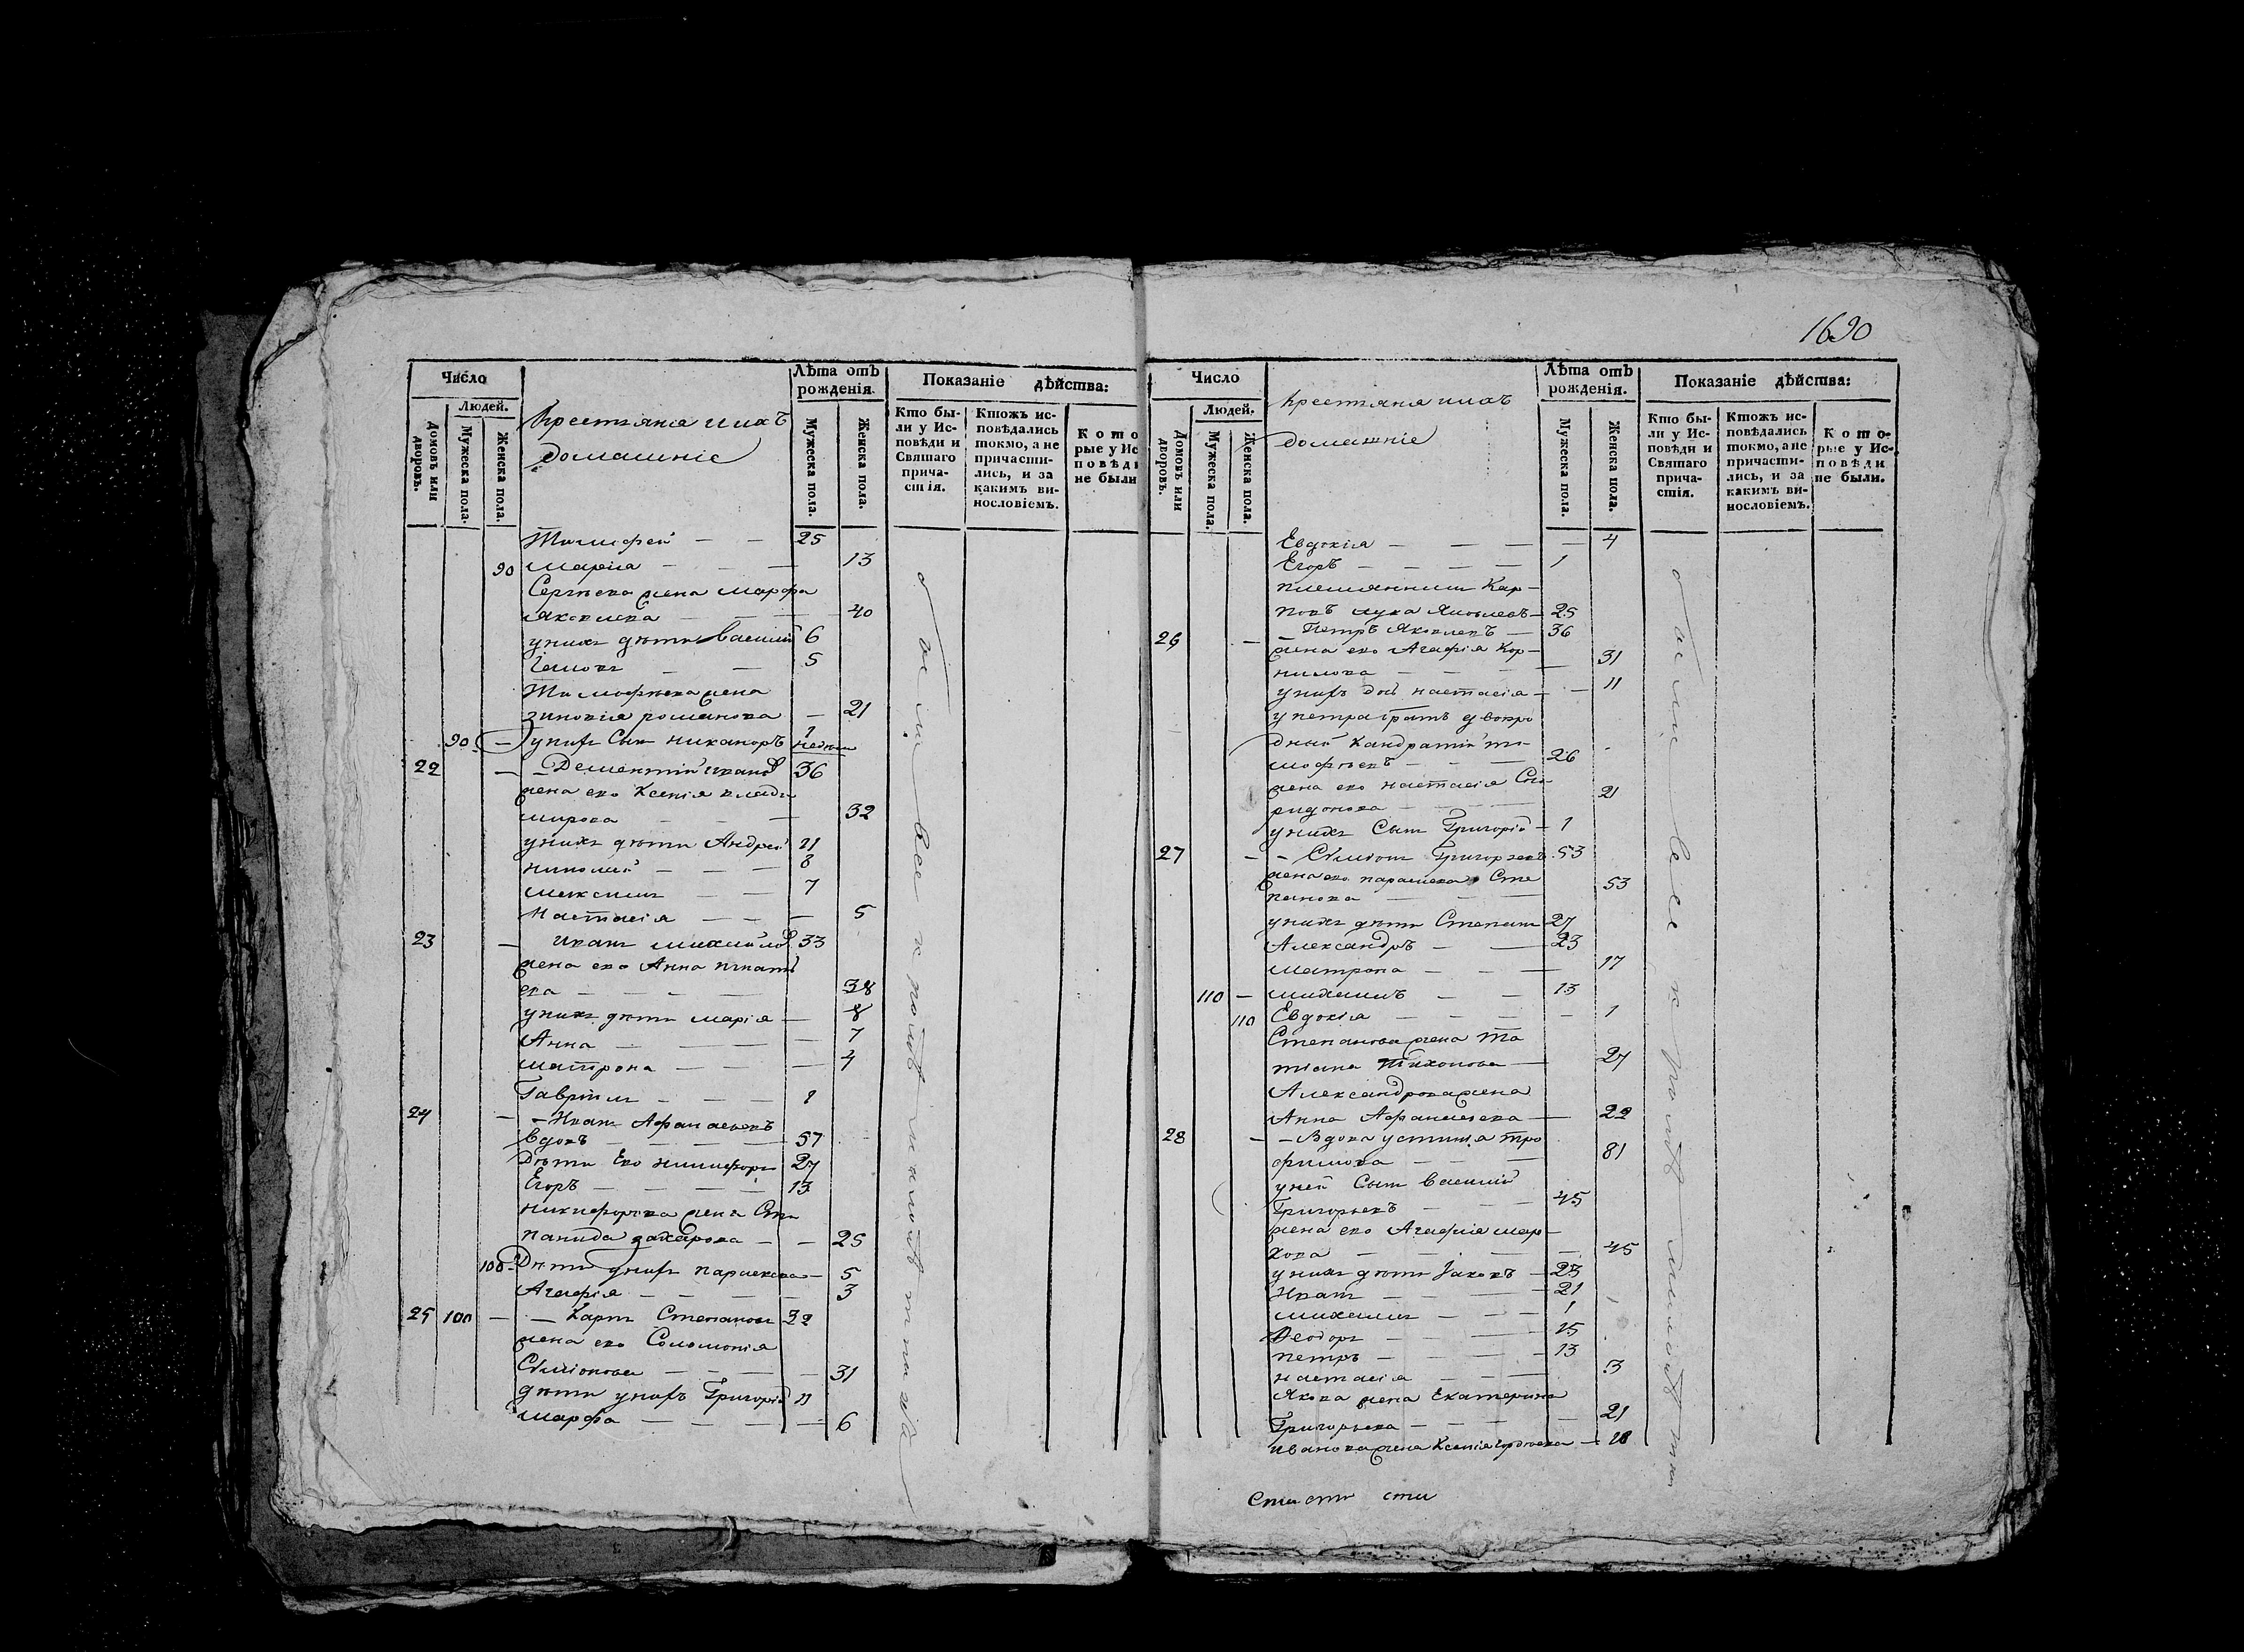 1690
Число
Людей.
Домовъ или дворовъ.
Мужеска пола.
Женска пола.
Крестьяне и ихъ
домашніе
Лѣта отъ рожденія.
Мужеска пола.
Женска пола.
Показаніе дѣйства:
Кто бы-
ли у Ис-
повѣди и
Святаго
прича-
стія.
Ктожъ ис-
повѣдались
токмо, а не
причасти-
лись, и за
какимъ ви-
нословіемъ.
Кото
рые у Ис
повѣди
не были
Тимофей — — 25
90 Марія — — — 13
Сергѣева жена Марфа
Яковлева — — — 40
у нихъ дѣти Василий 6
— — 5
Тимофѣева жена
Зиновія Романова — 21
90 — у нихъ сынъ Никаноръ недѣли
22 — — Дементий Иванов 36
жена его Ксенія Влади
мирова — — — 32
у нихъ дѣти Андрей 11
Николай — — — 8
Максимъ — — 7
Настасія — — — 5
23 — Иванъ Михайлов 33
жена его Анна Игнать
ева — — — — 38
у нихъ дѣти Марія — 8
Анна — — — — 7
Матрона — — — — 4
Гаврiилъ — — — 1
24 — — Иванъ Афанасьевъ
вдовъ — — — 57
Дѣти его Никифоръ 27
Егоръ — — — — 13
Никифорова жена Сте
панида Захарова — — 25
100 Дѣти у нихъ Параскева — 5
Агафія — — — — 3
25 100 — — Карпъ Степановъ 32
жена его Соломонія
Симіонова — — — 31
дѣти у нихъ Григорій 11
Марфа — — — — 6
были все к
Число
Людей.
Домовъ или дворовъ.
Мужеска пола.
Женска пола.
Крестьяне и ихъ
домашніе
Лѣта отъ рожденія.
Мужеска пола.
Женска пола.
Показаніе дѣйства:
Кто бы-
ли у Ис-
повѣди и
Святаго
прича-
стія.
Ктожъ ис-
повѣдались
токмо, а не
причасти-
лись, и за
какимъ ви-
нословіемъ.
Кото-
рые у Ис-
повѣди
не были.
Евдокія — — — — 4
Егоръ — — — — 1
племянникъ Кар-
повъ Лука Яковлевъ — 25
26 — — Петръ Яковлевъ — 36
жена его Агафія Кор-
нилова — — — 31
у нихъ дочь Настасія — — 11
у Петра братъ двою
дный Кандратій Ти-
мофѣевъ — — — 26
жена его Настасія Спи
ридонова — — — 21
у нихъ сынъ Григорій — 1
27 — — Симіонъ Григорьевъ 53
жена его Параскева Сте
панова — — — 53
у нихъ дѣти Степанъ 27
Александръ — — 23
Матрона — — — 17
110 — Михаилъ — — 13
110 Евдокія — — — — 1
Степанова жена Та
тіана Тихонова — 27
Александрова жена
Анна Афанасьева — — 22
28 — — Вдова Устинія Тро
фимова — — — 81
у ней сынъ Василий
Григорьевъ — — — 45
жена его Агафія Мар-
кова — — — — 45
у нихъ дѣти Іаковъ — 23
Иванъ — — — — 21
Михаилъ — — — 1
Ѳеодоръ — — — 15
Петръ — — — — 13
Настасія — — — 3
Якова жена Екатерина
Григорьева — — — — 21
Иванова жена Ксенія — 18
были все к